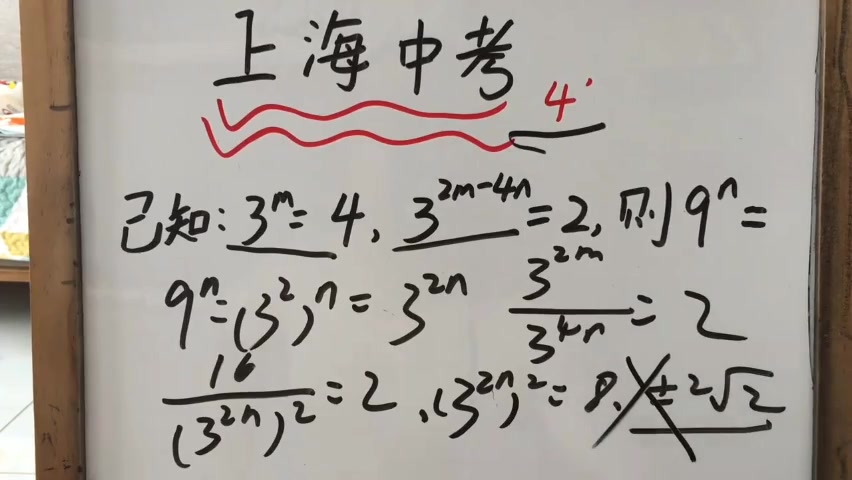 上海中考 4'
已知: 3^m = 4, 3^{2m-4n} = 2, 则 9^n =
9^n = (3^2)^n = 3^{2n} \frac{3^{2m}}{3^{4n}} = 2
\frac{16}{(3^{2n})^2} = 2, (3^{2n})^2 = 8, ±2√2